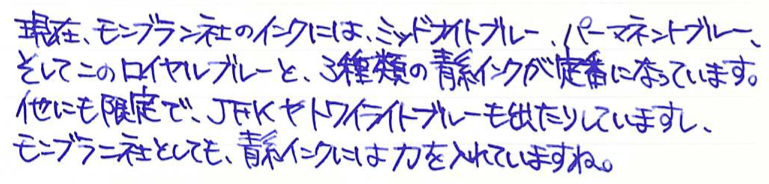 現在、モンブラン社のインクには、ミッドナイトブルー、パーマネントブルー、
そしてこのロイヤルブルーと、3種類の青系インクが定番になっています。
他にも限定で、JFKやトワイライトブルーも出たりしていますし、
モンブラン社としても、青系インクには力を入れていますね。